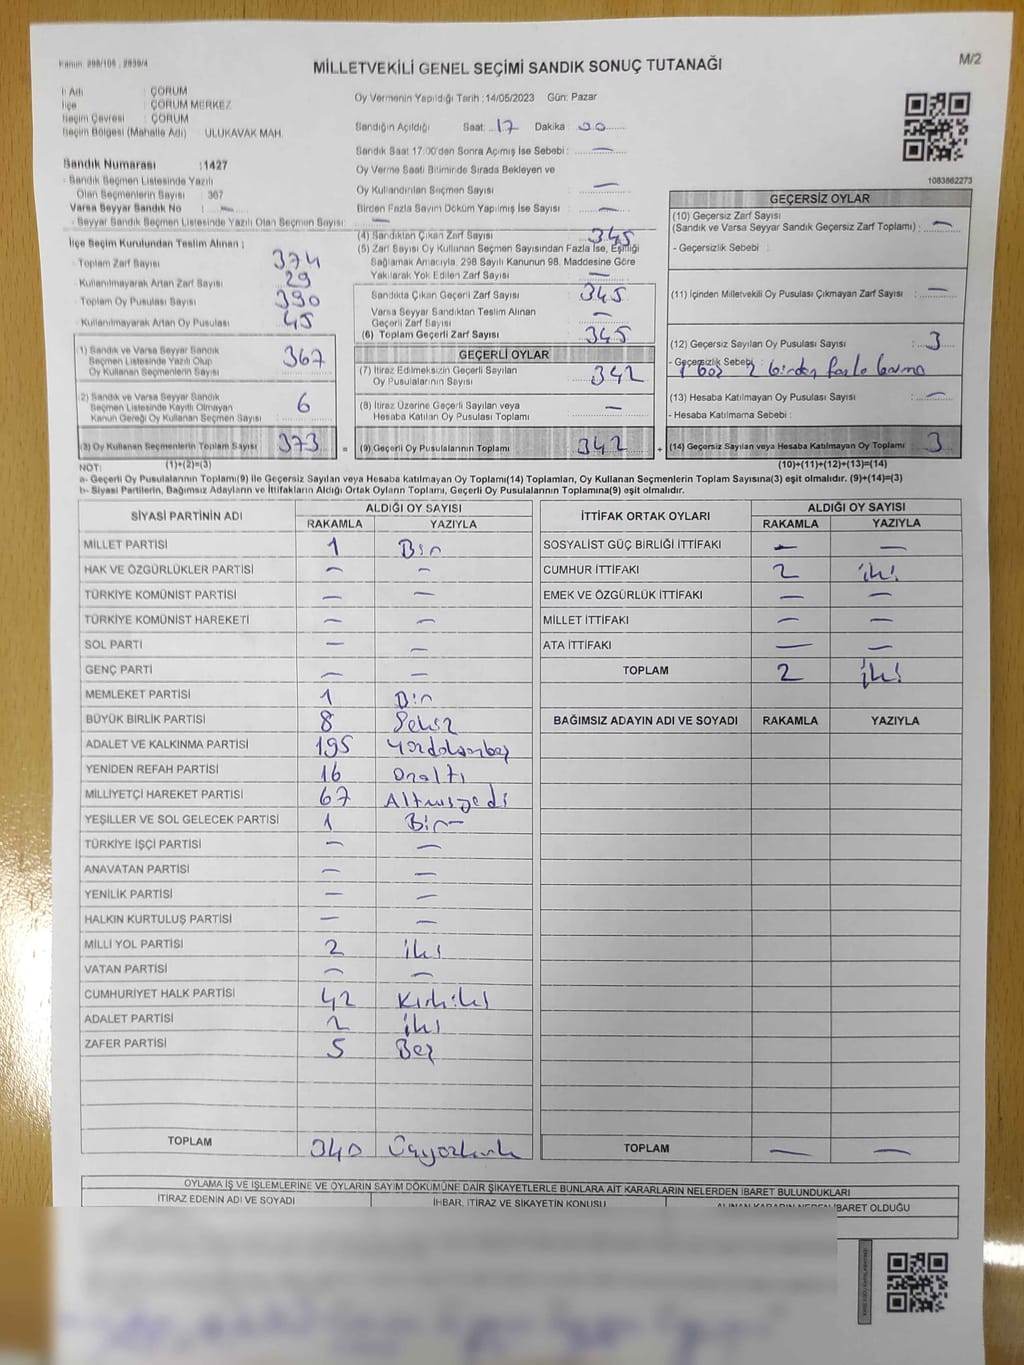 Kanun: 298/105 , 2839/4
MİLLETVEKİLİ GENEL SEÇİMİ SANDIK SONUÇ TUTANAĞI
M/2
İl Adı : ÇORUM
İlçe : ÇORUM MERKEZ
Seçim Çevresi : ÇORUM
Seçim Bölgesi (Mahalle Adı) ULUKAVAK MAH.
Oy Vermenin Yapıldığı Tarih :14/05/2023 Gün: Pazar
Sandığın Açıldığı Saat: 17 Dakika : 00
Sandık Saat 17:00'den Sonra Açımış İse Sebebi : —
Oy Verme Saati Bitiminde Sırada Bekleyen ve
Oy Kullandırılan Seçmen Sayısı : —
Birden Fazla Sayım Döküm Yapılmış İse Sayısı : —
1083862273
Sandık Numarası :1427
- Sandık Seçmen Listesinde Yazılı
Olan Seçmenlerin Sayısı : 367
Varsa Seyyar Sandık No : —
- Seyyar Sandık Seçmen Listesinde Yazılı Olan Seçmen Sayısı: —
İlçe Seçim Kurulundan Teslim Alınan ;
- Toplam Zarf Sayısı : 374
- Kullanılmayarak Artan Zarf Sayısı : 29
- Toplam Oy Pusulası Sayısı : 390
- Kullanılmayarak Artan Oy Pusulası : 45
1) Sandık ve Varsa Seyyar Sandık
Seçmen Listesinde Yazılı Olup
Oy Kullanan Seçmenlerin Sayısı : 367
2) Sandık ve Varsa Seyyar Sandık
Seçmen Listesinde Kayıtlı Olmayan
Kanun Gereği Oy Kullanan Seçmen Sayısı : 6
(3) Oy Kullanan Seçmenlerin Toplam Sayısı : 373 =
(1)+(2)=(3)
(4) Sandıktan Çıkan Zarf Sayısı : 345
(5) Zarf Sayısı Oy Kullanan Seçmen Sayısından Fazla İse, Eşitliği
Sağlamak Amacıyla, 298 Sayılı Kanunun 98. Maddesine Göre
Yakılarak Yok Edilen Zarf Sayısı : —
Sandıkta Çıkan Geçerli Zarf Sayısı : 345
Varsa Seyyar Sandıktan Teslim Alınan
Geçerli Zarf Sayısı : —
(6) Toplam Geçerli Zarf Sayısı : 345
GEÇERLİ OYLAR
(7) İtiraz Edilmeksizin Geçerli Sayılan
Oy Pusulalarının Sayısı : 342
(8) İtiraz Üzerine Geçerli Sayılan veya
Hesaba Katılan Oy Pusulası Toplamı : —
(9) Geçerli Oy Pusulalarının Toplamı : 342 +
GEÇERSİZ OYLAR
(10) Geçersiz Zarf Sayısı
(Sandık ve Varsa Seyyar Sandık Geçersiz Zarf Toplamı) : —
- Geçersizlik Sebebi :
(11) İçinden Milletvekili Oy Pusulası Çıkmayan Zarf Sayısı : —
(12) Geçersiz Sayılan Oy Pusulası Sayısı : 3
- Geçersizlik Sebebi : 1 boş 2 birden fazla basma
(13) Hesaba Katılmayan Oy Pusulası Sayısı : —
- Hesaba Katılmama Sebebi :
(14) Geçersiz Sayılan veya Hesaba Katılmayan Oy Toplamı : 3
(10)+(11)+(12)+(13)=(14)
NOT:
a- Geçerli Oy Pusulalarının Toplamı(9) İle Geçersiz Sayılan veya Hesaba katılmayan Oy Toplamı(14) Toplamları, Oy Kullanan Seçmenlerin Toplam Sayısına(3) eşit olmalıdır. (9)+(14)=(3)
b- Siyasi Partilerin, Bağımsız Adayların ve İttifakların Aldığı Ortak Oyların Toplamı, Geçerli Oy Pusulalarının Toplamına(9) eşit olmalıdır.
SİYASİ PARTİNİN ADI ALDIĞI OY SAYISI
RAKAMLA YAZIYLA
MİLLET PARTİSİ 1 Bir
HAK VE ÖZGÜRLÜKLER PARTİSİ — —
TÜRKİYE KOMÜNİST PARTİSİ — —
TÜRKİYE KOMÜNİST HAREKETİ — —
SOL PARTİ — —
GENÇ PARTİ — —
MEMLEKET PARTİSİ 1 Bir
BÜYÜK BİRLİK PARTİSİ 8 Sekiz
ADALET VE KALKINMA PARTİSİ 195 Yüzdoksanbeş
YENİDEN REFAH PARTİSİ 16 Onaltı
MİLLİYETÇİ HAREKET PARTİSİ 67 Altmışyedi
YEŞİLLER VE SOL GELECEK PARTİSİ 1 Bir
TÜRKİYE İŞÇİ PARTİSİ — —
ANAVATAN PARTİSİ — —
YENİLİK PARTİSİ — —
HALKIN KURTULUŞ PARTİSİ — —
MİLLİ YOL PARTİSİ 2 iki
VATAN PARTİSİ — —
CUMHURİYET HALK PARTİSİ 42 Kırkiki
ADALET PARTİSİ 2 iki
ZAFER PARTİSİ 5 Beş
TOPLAM 340 Üçyüzkırk
İTTİFAK ORTAK OYLARI ALDIĞI OY SAYISI
RAKAMLA YAZIYLA
SOSYALİST GÜÇ BİRLİĞİ İTTİFAKI — —
CUMHUR İTTİFAKI 2 iki
EMEK VE ÖZGÜRLÜK İTTİFAKI — —
MİLLET İTTİFAKI — —
ATA İTTİFAKI — —
TOPLAM 2 iki
BAĞIMSIZ ADAYIN ADI VE SOYADI RAKAMLA YAZIYLA
TOPLAM — —
OYLAMA İŞ VE İŞLEMLERİNE VE OYLARIN SAYIM DÖKÜMÜNE DAİR ŞİKAYETLERLE BUNLARA AİT KARARLARIN NELERDEN İBARET BULUNDUKLARI
İTİRAZ EDENİN ADI VE SOYADI İHBAR, İTİRAZ VE ŞİKAYETİN KONUSU ALINAN KARARIN NEDEN İBARET OLDUĞU